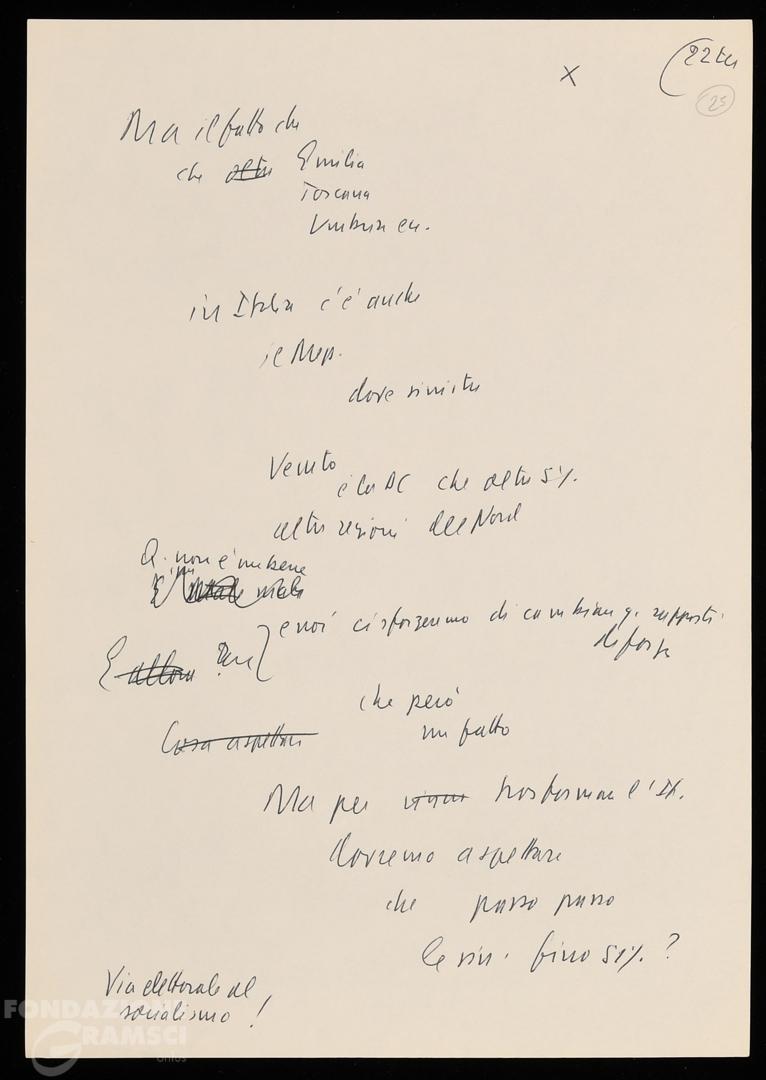 (22 ter
25
X
Ma il fatto che
che oltre Emilia
Toscana
Umbria ecc.
in Italia c'è anche
il Mezz.
dove sinistre
Veneto
è la DC che oltre 51%.
altre regioni del Nord
Q. non è un bene
E allora Bene
e noi ci sforzeremo di cambiare q. rapporti
di forza
che però
un fatto
Cosa aspettare
Ma per trasformare l'It.
dovremo aspettare
che passo passo
le sin. fino 51%.?
Via elettorale al
socialismo!
FONDAZIONE
GRAMSCI
onlus